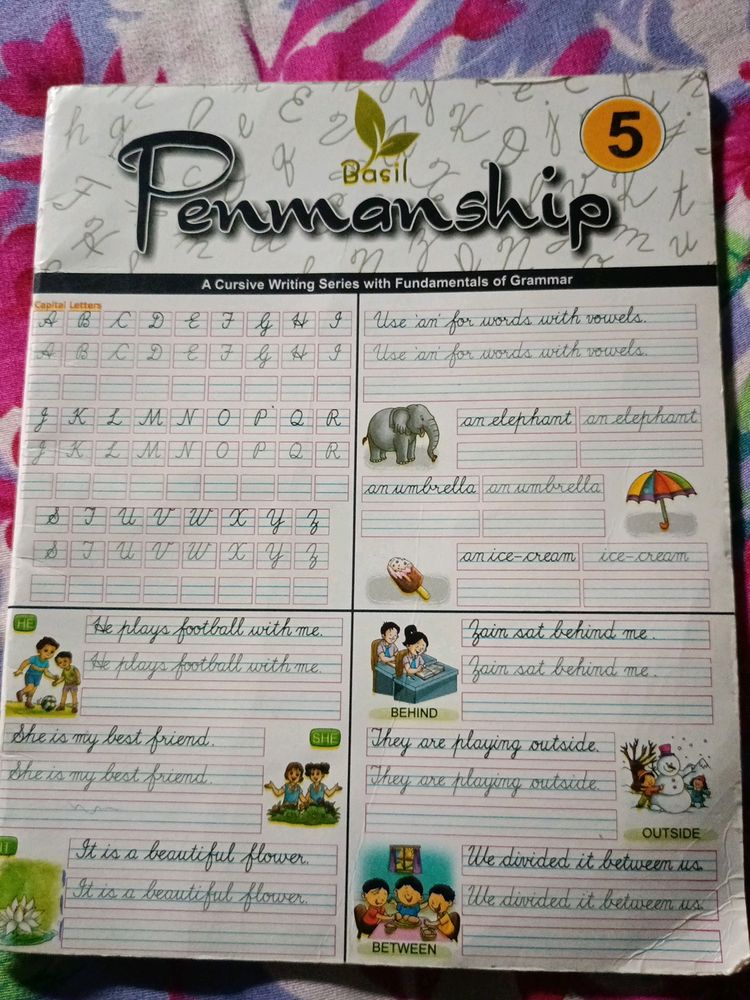 5
Basil
Penmanship
A Cursive Writing Series with Fundamentals of Grammar
Capital Letters
A B C D E F G H I
A B C D E F G H I
J K L M N O P Q R
J K L M N O P Q R
S T U V W X Y Z
S T U V W X Y Z
Use 'an' for words with vowels.
Use 'an' for words with vowels.
an elephant an elephant
an umbrella an umbrella
an ice-cream ice-cream
HE
He plays football with me.
He plays football with me.
She is my best friend.
SHE
She is my best friend.
It is a beautiful flower.
It is a beautiful flower.
Zain sat behind me.
Zain sat behind me.
BEHIND
They are playing outside.
They are playing outside.
OUTSIDE
We divided it between us.
We divided it between us.
BETWEEN